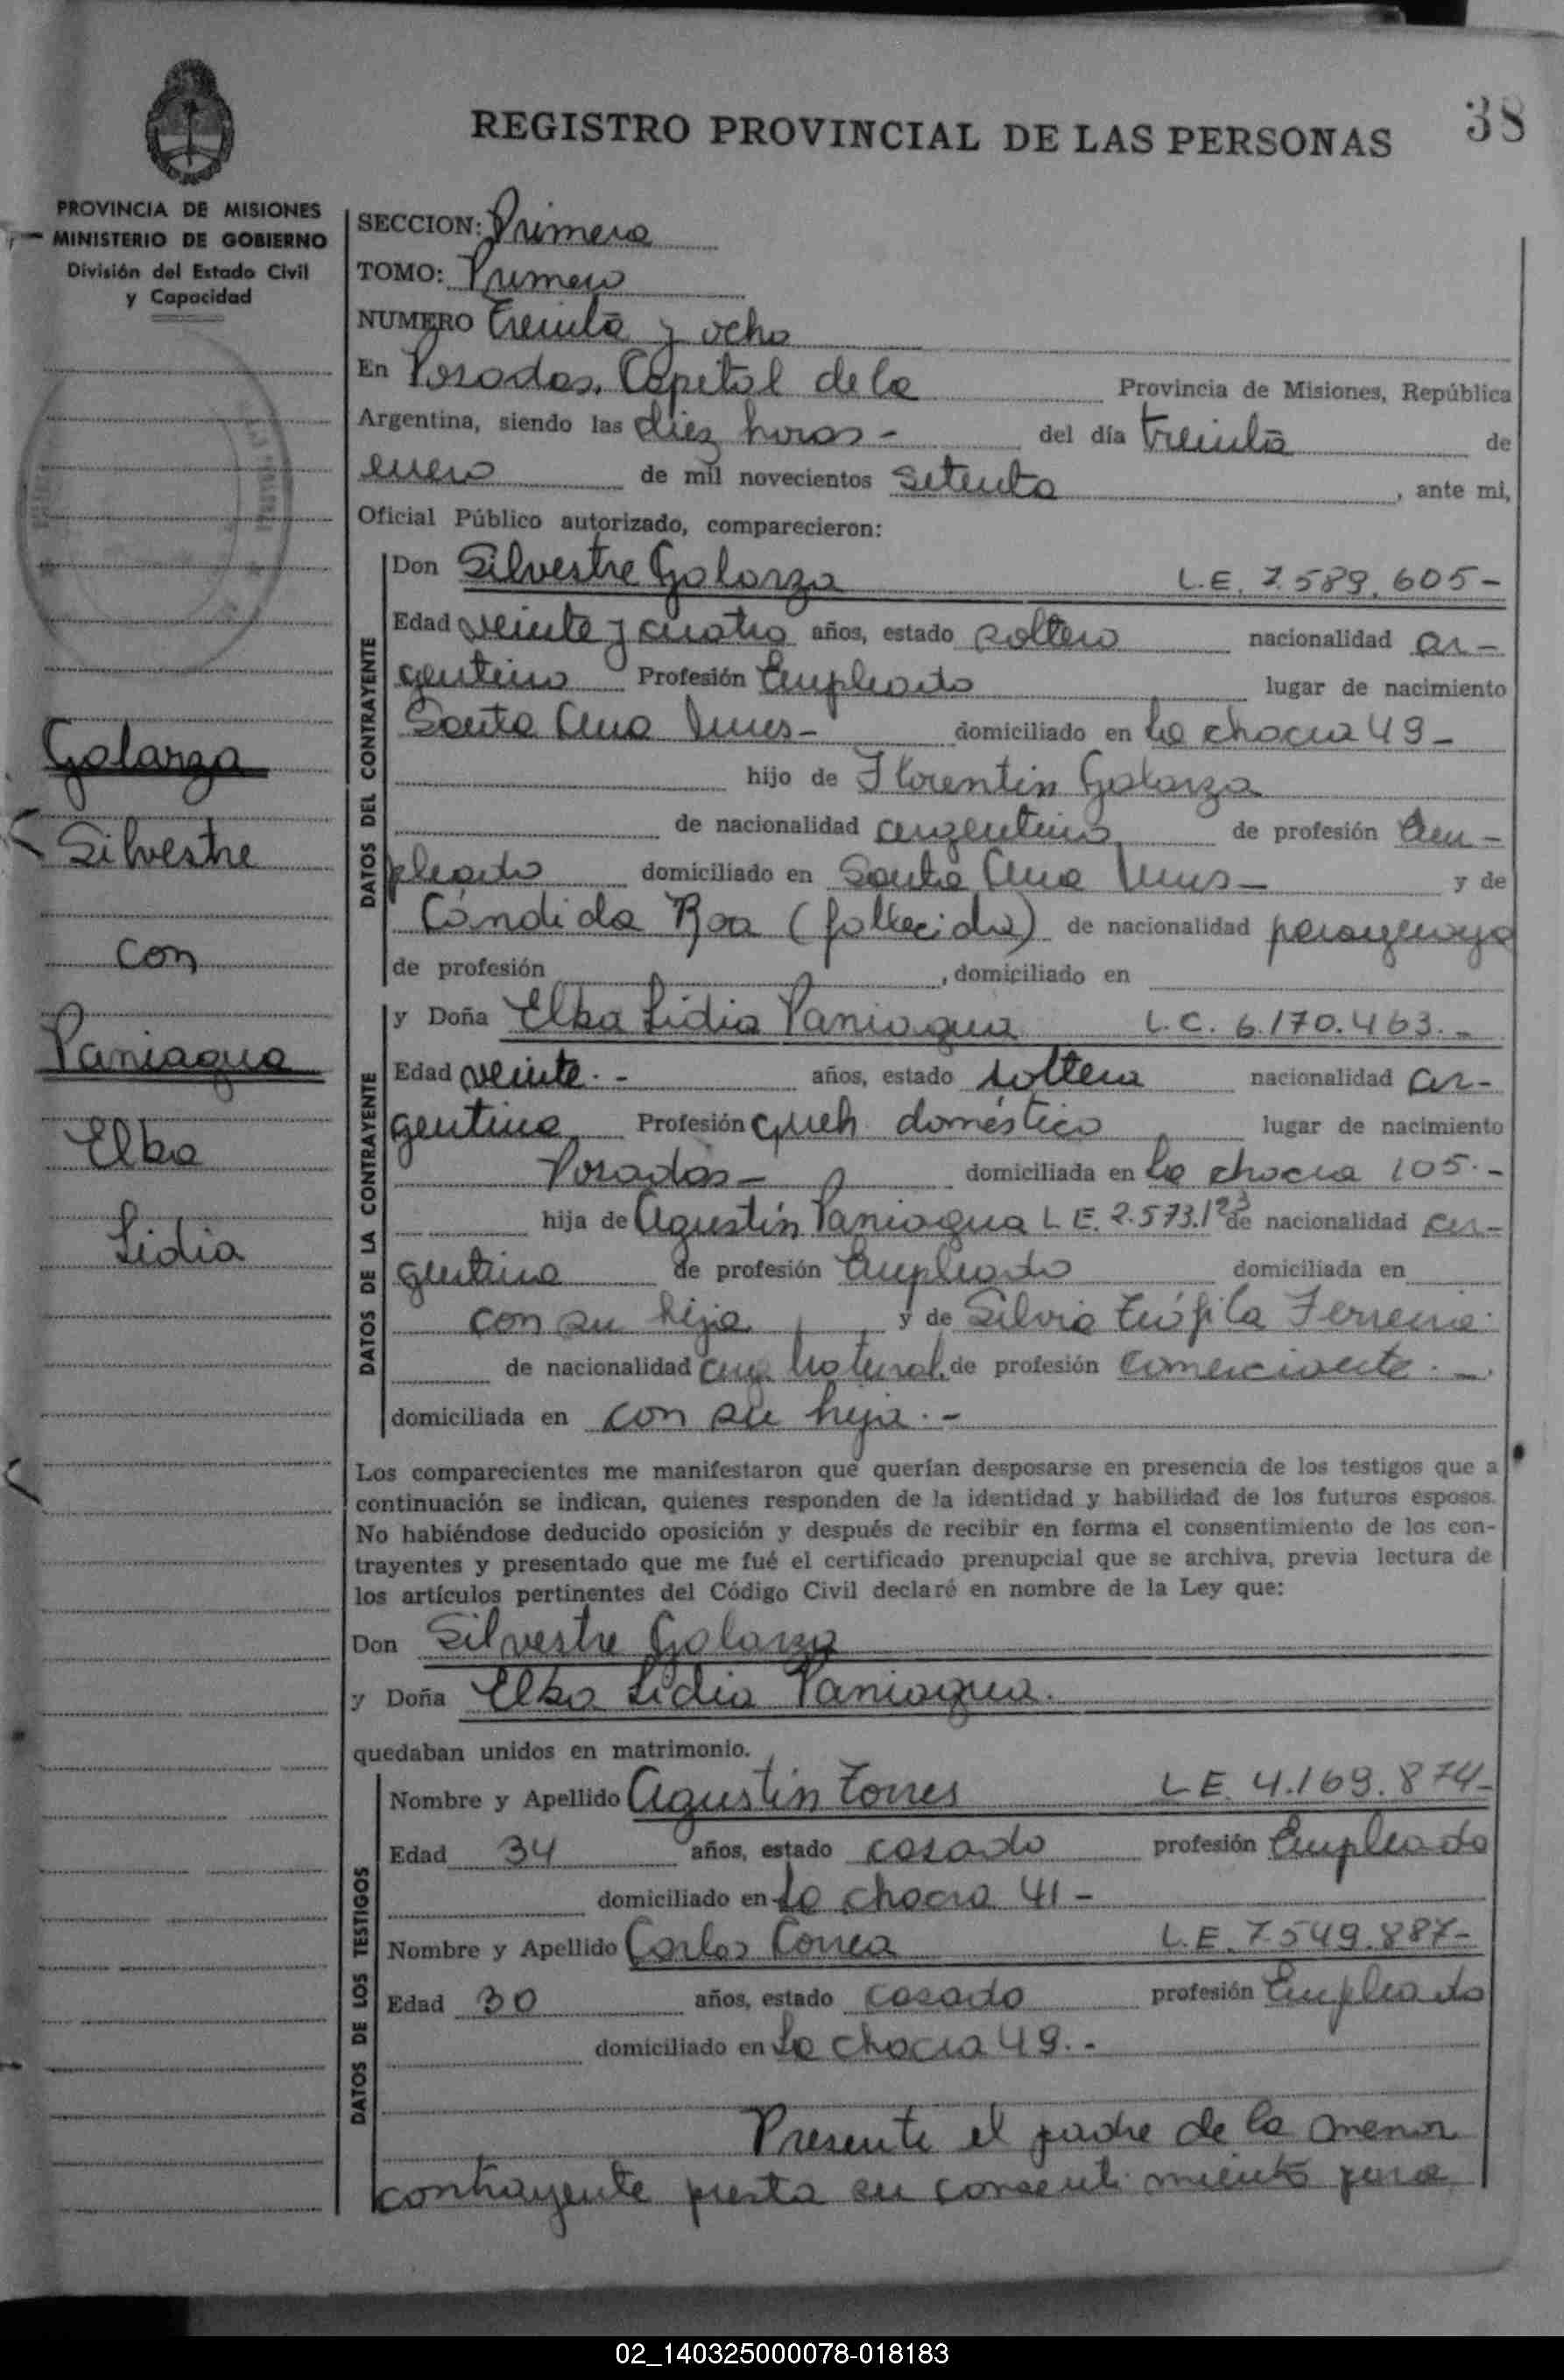 38
REGISTRO PROVINCIAL DE LAS PERSONAS
PROVINCIA DE MISIONES
MINISTERIO DE GOBIERNO
División del Estado Civil
y Capacidad
Golarza
Silvestre
con
Paniagua
Elba
Lidia
SECCION: Primera
TOMO: Primero
NUMERO Treinta y ocho
En Posadas, Capital de la Provincia de Misiones, República
Argentina, siendo las diez horas - del día treinta de
enero de mil novecientos setenta, ante mi,
Oficial Público autorizado, comparecieron:
DATOS DEL CONTRAYENTE
Don Silvestre Golarza L.E. 7.589.605-
Edad veinte y cuatro años, estado soltero nacionalidad ar-
gentino Profesión Empleado lugar de nacimiento
Santa Ana Mnes- domiciliado en La chacra 49-
hijo de Florentin Golarza
de nacionalidad argentino de profesión Em-
pleado domiciliado en Santa Ana Mnes- y de
Cándida Roa (fallecida) de nacionalidad paraguaya
de profesión , domiciliado en
DATOS DE LA CONTRAYENTE
y Doña Elba Lidia Paniagua L.C. 6.170.463.-
Edad veinte.- años, estado soltera nacionalidad ar-
gentina Profesión queh. doméstico lugar de nacimiento
Posadas- domiciliada en La chacra 105.-
hija de Agustín Paniagua L.E. 2.573.123 de nacionalidad ar-
gentina de profesión Empleado domiciliada en
con su hija y de Silvia Teófila Ferreira.
de nacionalidad arg. Natural. de profesión comerciante.-
domiciliada en con su hija.-
Los comparecientes me manifestaron que querían desposarse en presencia de los testigos que a
continuación se indican, quienes responden de la identidad y habilidad de los futuros esposos.
No habiéndose deducido oposición y después de recibir en forma el consentimiento de los con-
trayentes y presentado que me fué el certificado prenupcial que se archiva, previa lectura de
los artículos pertinentes del Código Civil declaré en nombre de la Ley que:
Don Silvestre Golarza
y Doña Elba Lidia Paniagua.
quedaban unidos en matrimonio.
DATOS DE LOS TESTIGOS
Nombre y Apellido Agustín Torres L.E. 4.169.874-
Edad 34 años, estado casado profesión Empleado
domiciliado en La chacra 41-
Nombre y Apellido Carlos Correa L.E. 7.549.887-
Edad 30 años, estado casado profesión Empleado
domiciliado en La chacra 49.-
Presente el padre de la menor
contrayente presta su consentimiento para
02_140325000078-018183